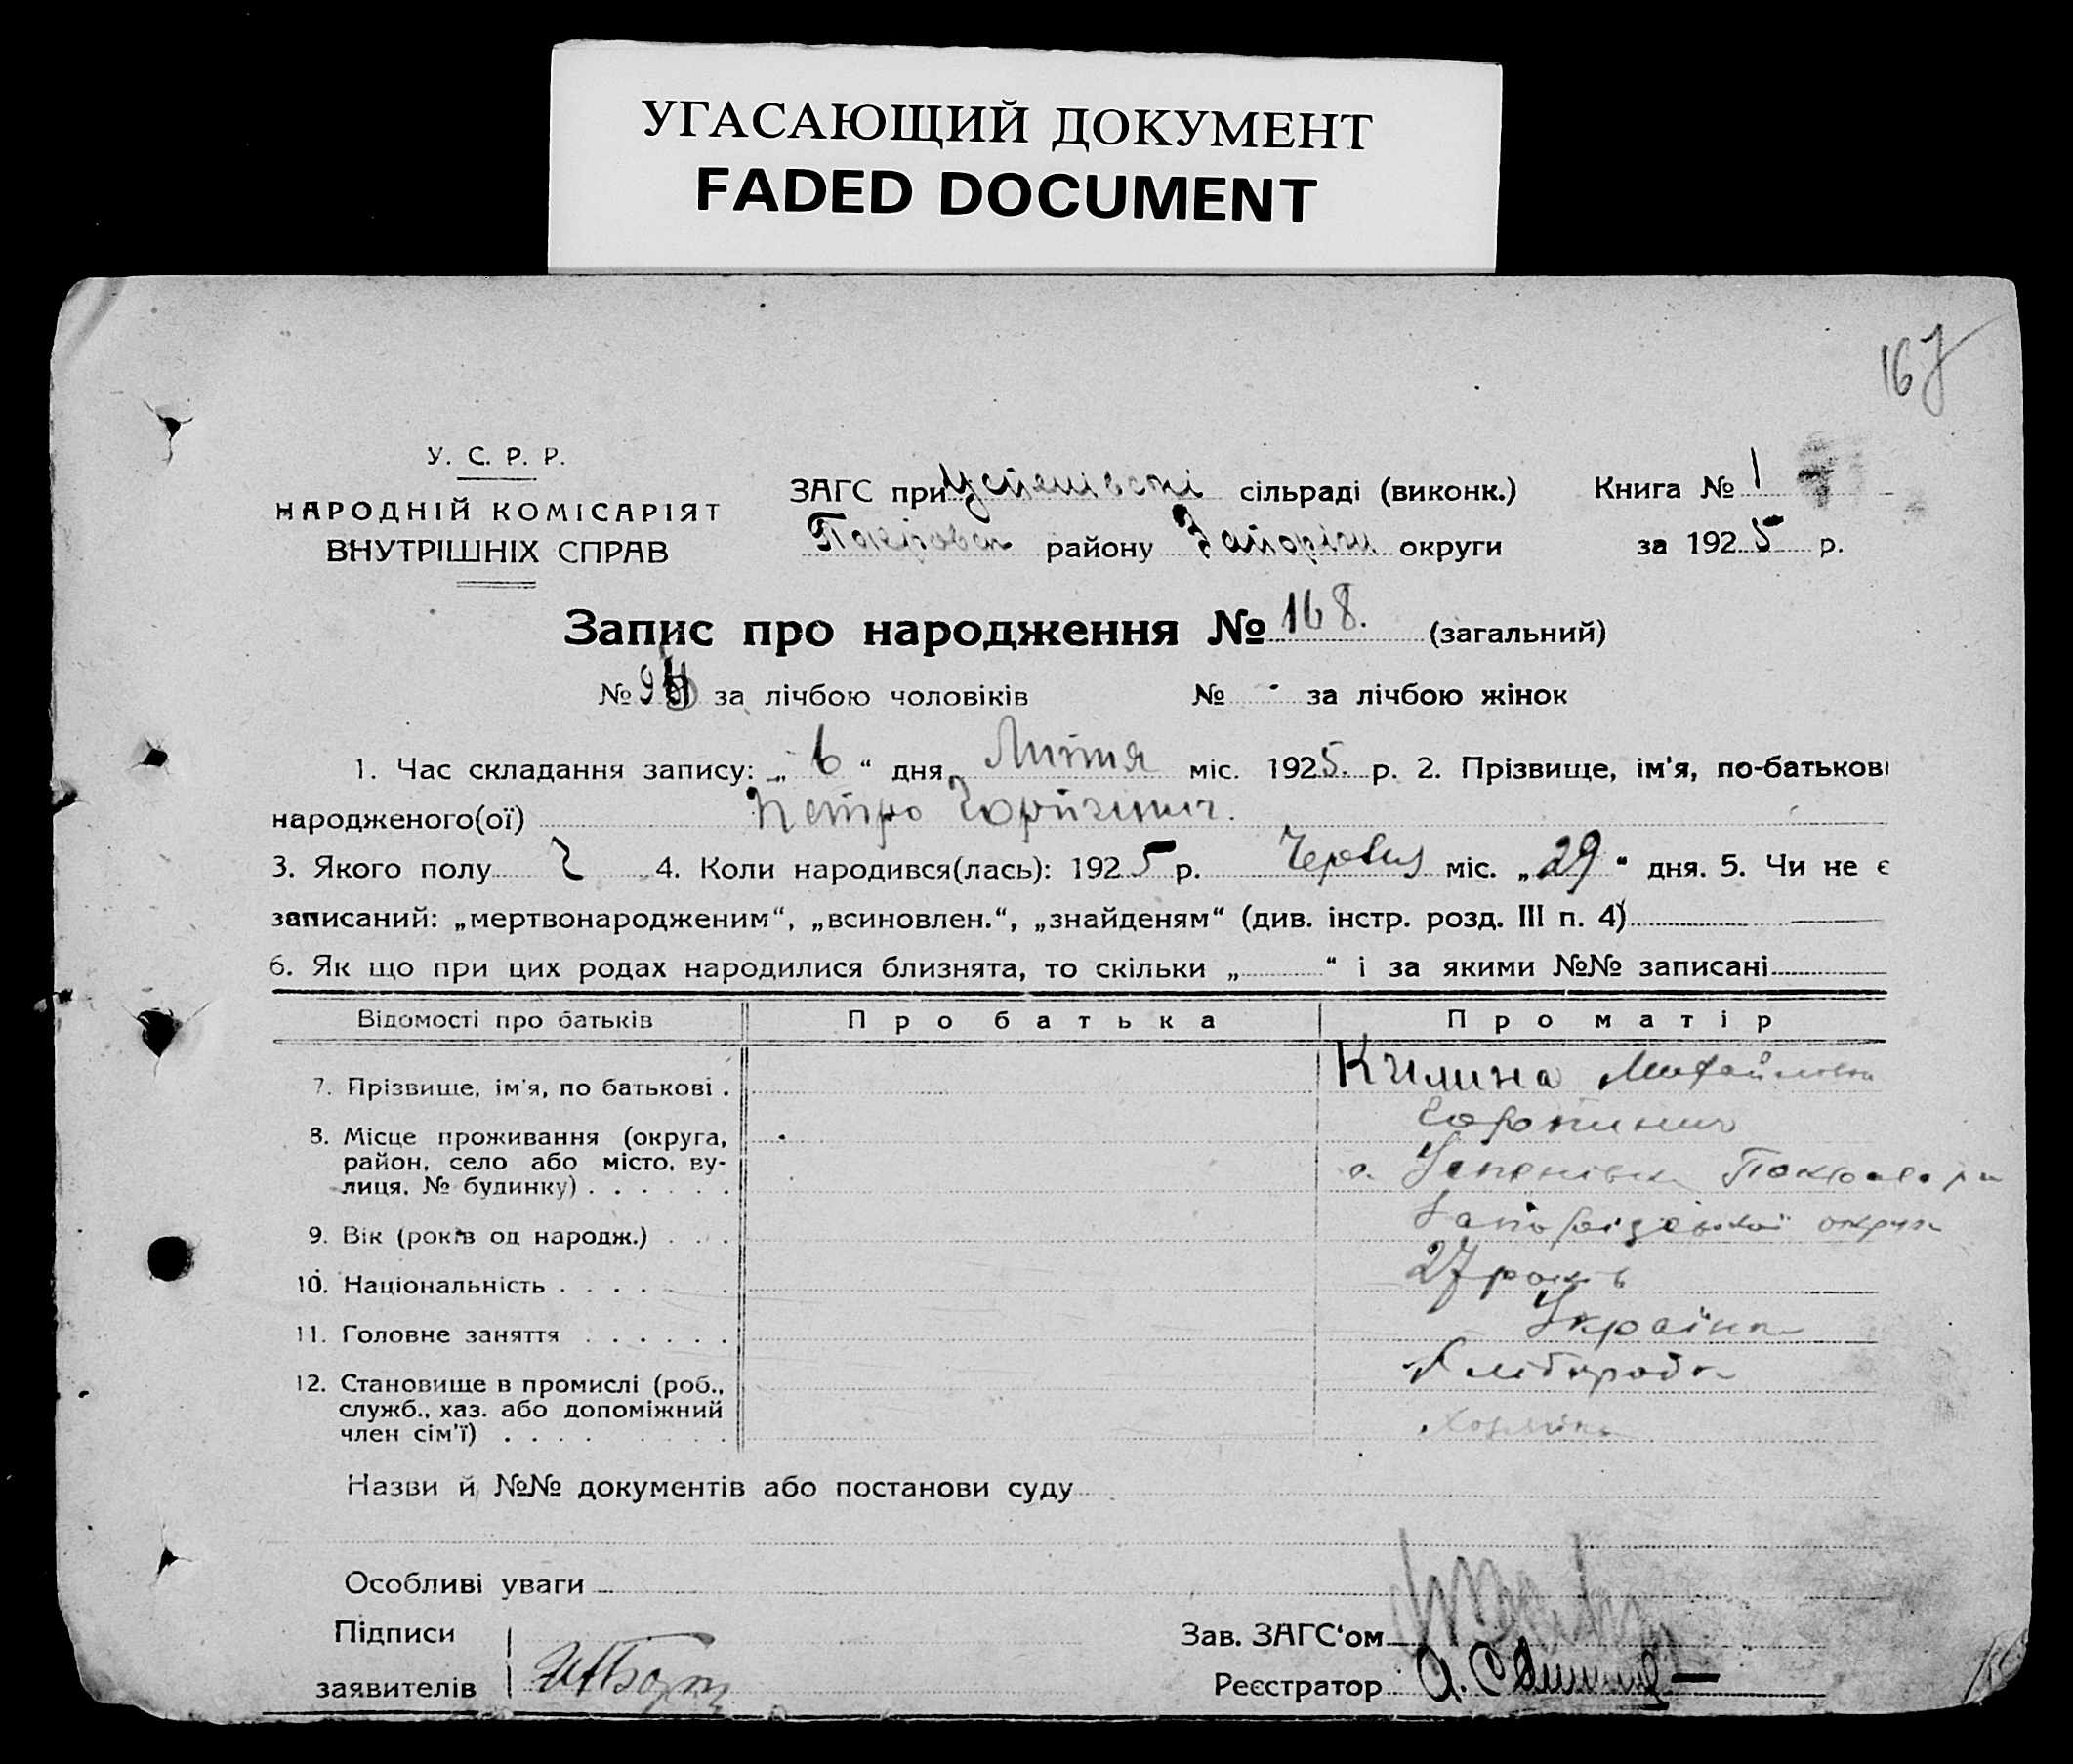 УГАСАЮЩИЙ ДОКУМЕНТ
FADED DOCUMENT
167
У. С. Р. Р.
НАРОДНІЙ КОМІСАРІЯТ
ВНУТРІШНІХ СПРАВ
ЗАГС при Успенівскі сільраді (виконк.)
Покровск району Запоріж округи
Книга № 1
за 1925 р.
Запис про народження № 168. (загальний)
№ за лічбою чоловіків № - за лічбою жінок
1. Час складання запису: „ 6 “ дня Липня міс. 1925. р. 2. Прізвище, ім'я, по-батькові
народженого(ої) Петро
3. Якого полу Ч 4. Коли народився(лась): 1925 р. Червня міс. „ 29 “ дня. 5. Чи не є
записаний: „мертвонародженим“, „всиновлен.“, „знайденям“ (див. інстр. розд. III п. 4)
6. Як що при цих родах народилися близнята, то скільки „ “ і за якими №№ записані
Відомості про батьків Про батька Про матір
7. Прізвище, ім'я, по батькові . Килина Михайловна
8. Місце проживання (округа,
район, село або місто, ву-
лиця, № будинку) . . . . . . с. Успенівка Покровск. р н
Запорізської округи
9. Вік (років од народж.) . . . 27 років
10. Національність . . . . . . Українка
11. Головне заняття . . . . . . Хлібороб
12. Становище в промислі (роб.,
служб., хаз. або допоміжний
член сім'ї) . . . . . . . . Хозяйка
Назви й №№ документів або постанови суду
Особливі уваги
Підписи
заявителів
Зав. ЗАГС‘ом
Реєстратор